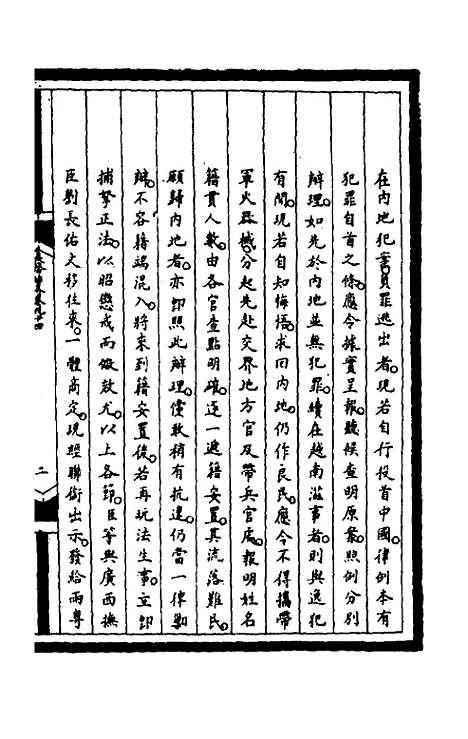 在內地犯案負罪逃出者。現若自行投首中國。律例本有
犯罪自首之條。應令據實呈報。聽候查明原案。照例分別
辦理。如先於內地並無犯罪。續在越南滋事者。則與逸犯
有間。現若自知悔悟。求回內地。仍作良民。應令不得攜帶
軍火器械。分起先赴交界地方官及帶兵官處。報明姓名
籍貫人數。由各官查點明確。逐一遞籍安置。其流落難民。
願歸內地者。亦卽照此辦理。儻敢稍有抗違。仍當一律勦
辦。不容藉端混入。將來到籍安置後。若再玩法生事。立卽
捕拏正法。以昭懲戒而儆效尤。以上各節。臣等與廣西撫
臣劉長佑文移往來。一體商定。現經聯銜出示。發給兩粵
二